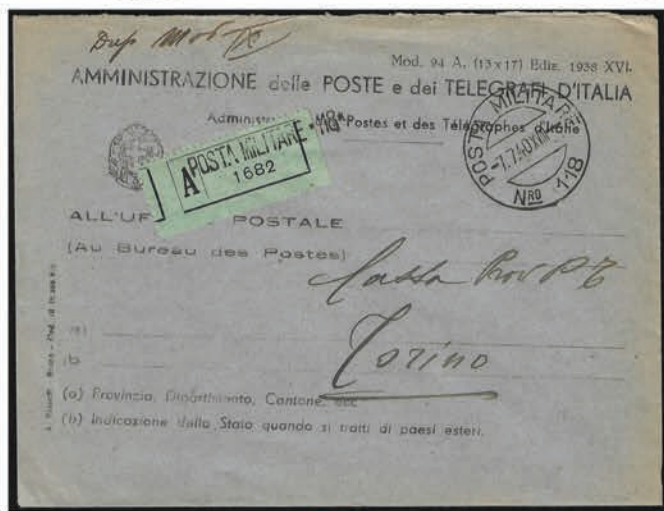 Mod. 94 A. (13x17) Ediz. 1938 XVI.
AMMINISTRAZIONE delle POSTE e dei TELEGRAFI D'ITALIA
Postes et des Télégraphes d'Italie
POSTA MILITARE
-7.7.40.XVIII
NRO 118
POSTA MILITARE * 118 *
A
1682
ALL'UF POSTALE
(Au Bureau des Postes)
Cassa Prov P T
Torino
(a)
(b
(a) Provincia, Dipartimento, Cantone, ecc
(b) Indicazione dello Stato quando si tratti di paesi esteri.